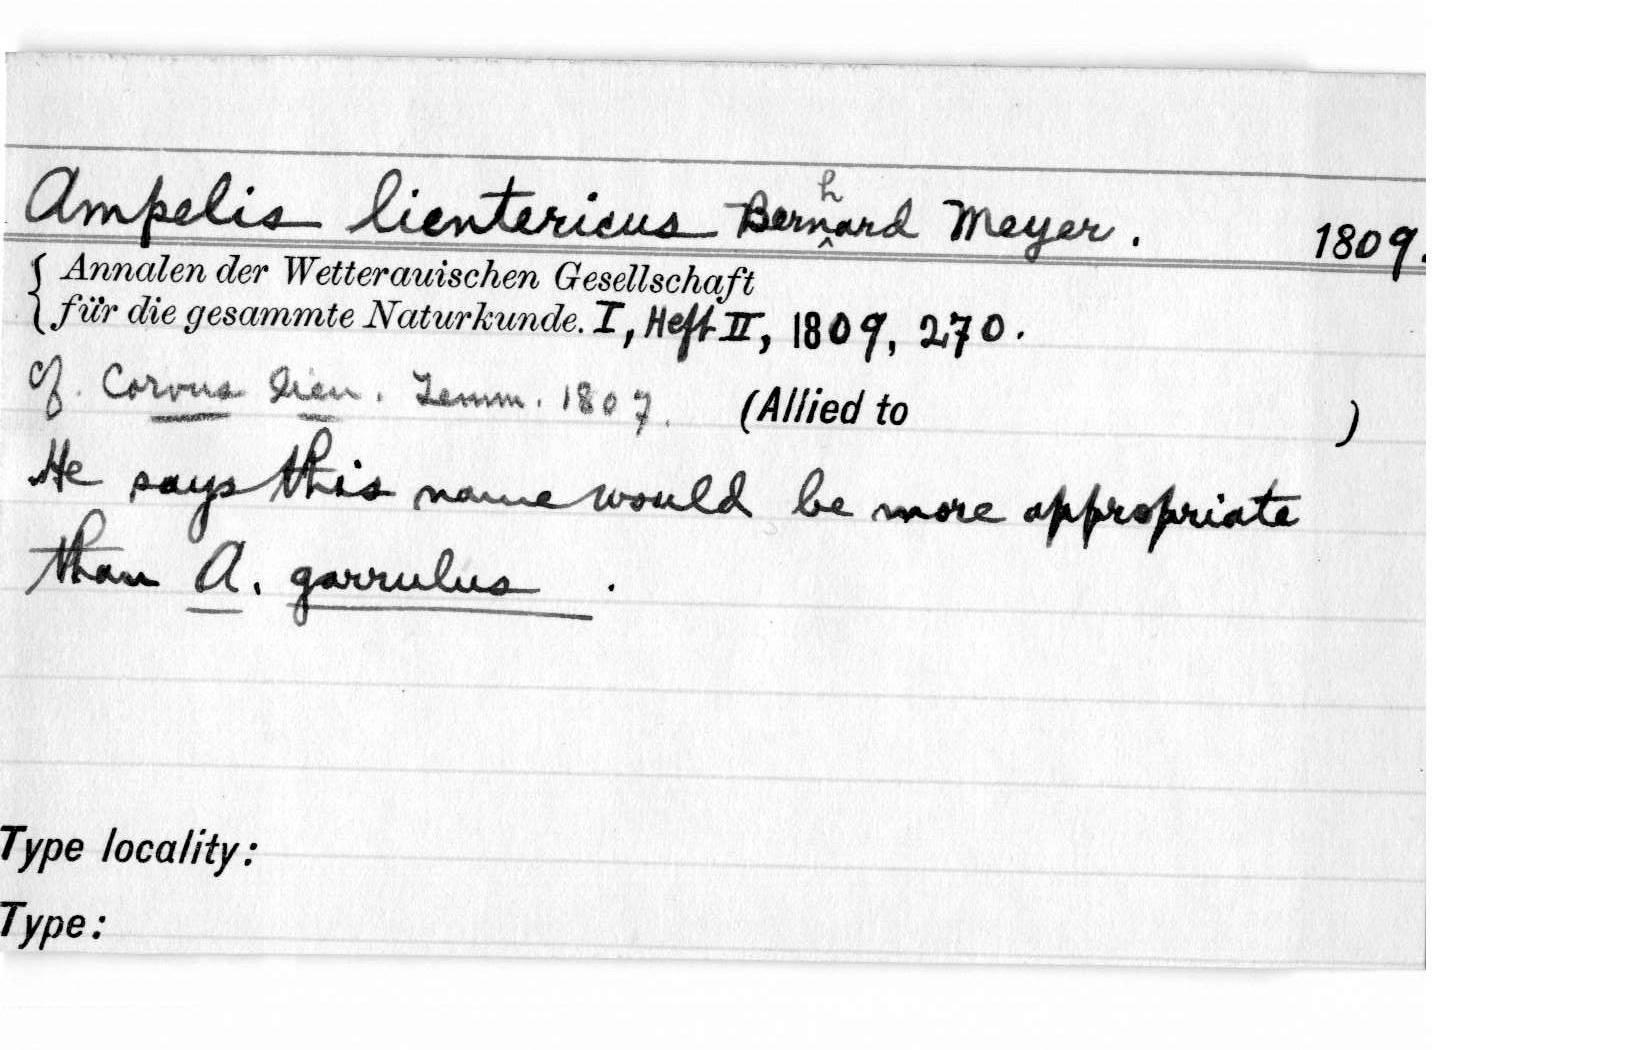 Ampelis lientericus Bernhard Meyer. 1809.
Annalen der Wetterauischen Gesellschaft
für die gesammte Naturkunde. I, Heft II, 1809, 270.
cf. Corvus lien. Temm. 1807. (Allied to )
He says this name would be more appropriate
than A. garrulus .
Type locality:
Type: